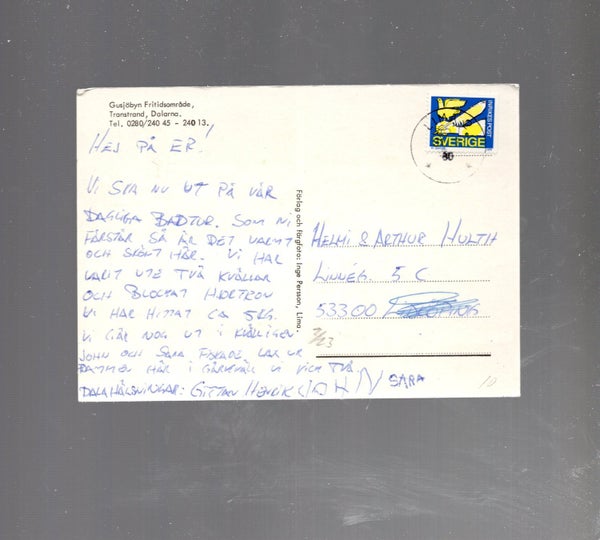 Gusjöbyn Fritidsområde,
Transtrand, Dalarna.
Tel. 0280/240 45 - 240 13.
HEJ PÅ ER!
VI SKA NU UT PÅ VÅR
DAGLIGA BADTUR. SOM NI
FÖRSTÅR SÅ ÄR DET VARMT
OCH SKÖNT HÄR. VI HAR
VARIT UTE TVÅ KVÄLLAR
OCH PLOCKAT HJORTRON
VI HAR HITTAT CA 5KG.
VI GÅR NOG UT I KVÄLL IGEN
JOHN OCH SARA
DAMMEN HÄR I GÅRKVÄLL VI FICK TVÅ.
DALAHÄLSNINGAR: GITTAN HENRIK JOHN SARA
Förlag och färgfoto: Inge Persson, Lima.
INRIKES POST
SVERIGE
80
HELMI & ARTHUR HULTH
LINNÉG. 5 C
53300
7/23
10